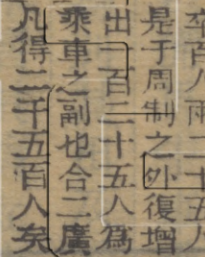 卒百八兩二十五人
是于周制之外復增
出一百二十五人爲
乘車之副也合二廣
凡得二千五百人矣